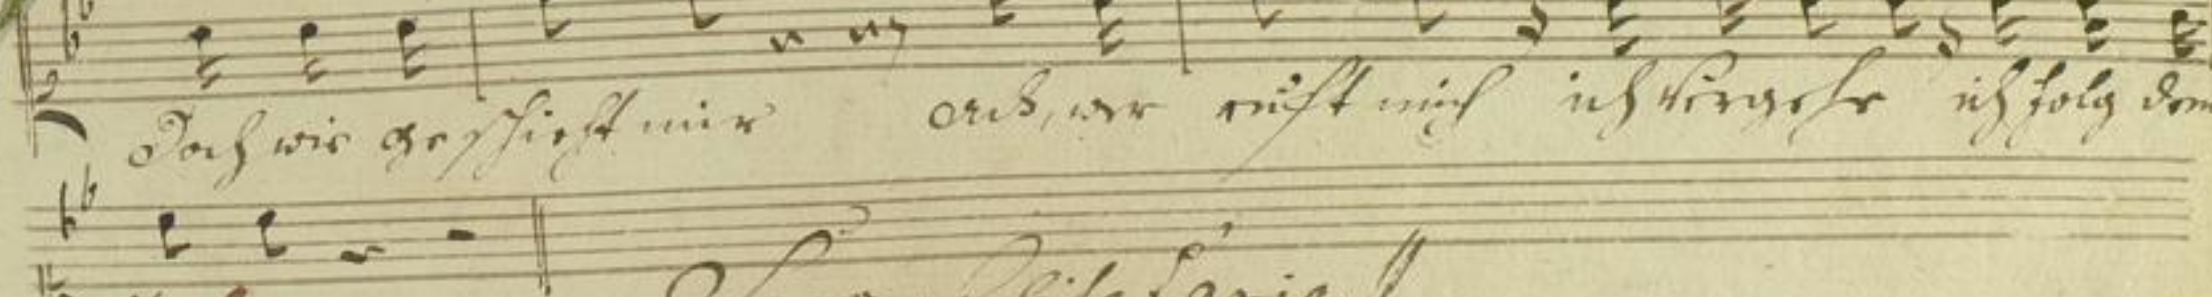 Doch wie geschieht mir ach, wer ruft mich ich vergehe ich folg dem